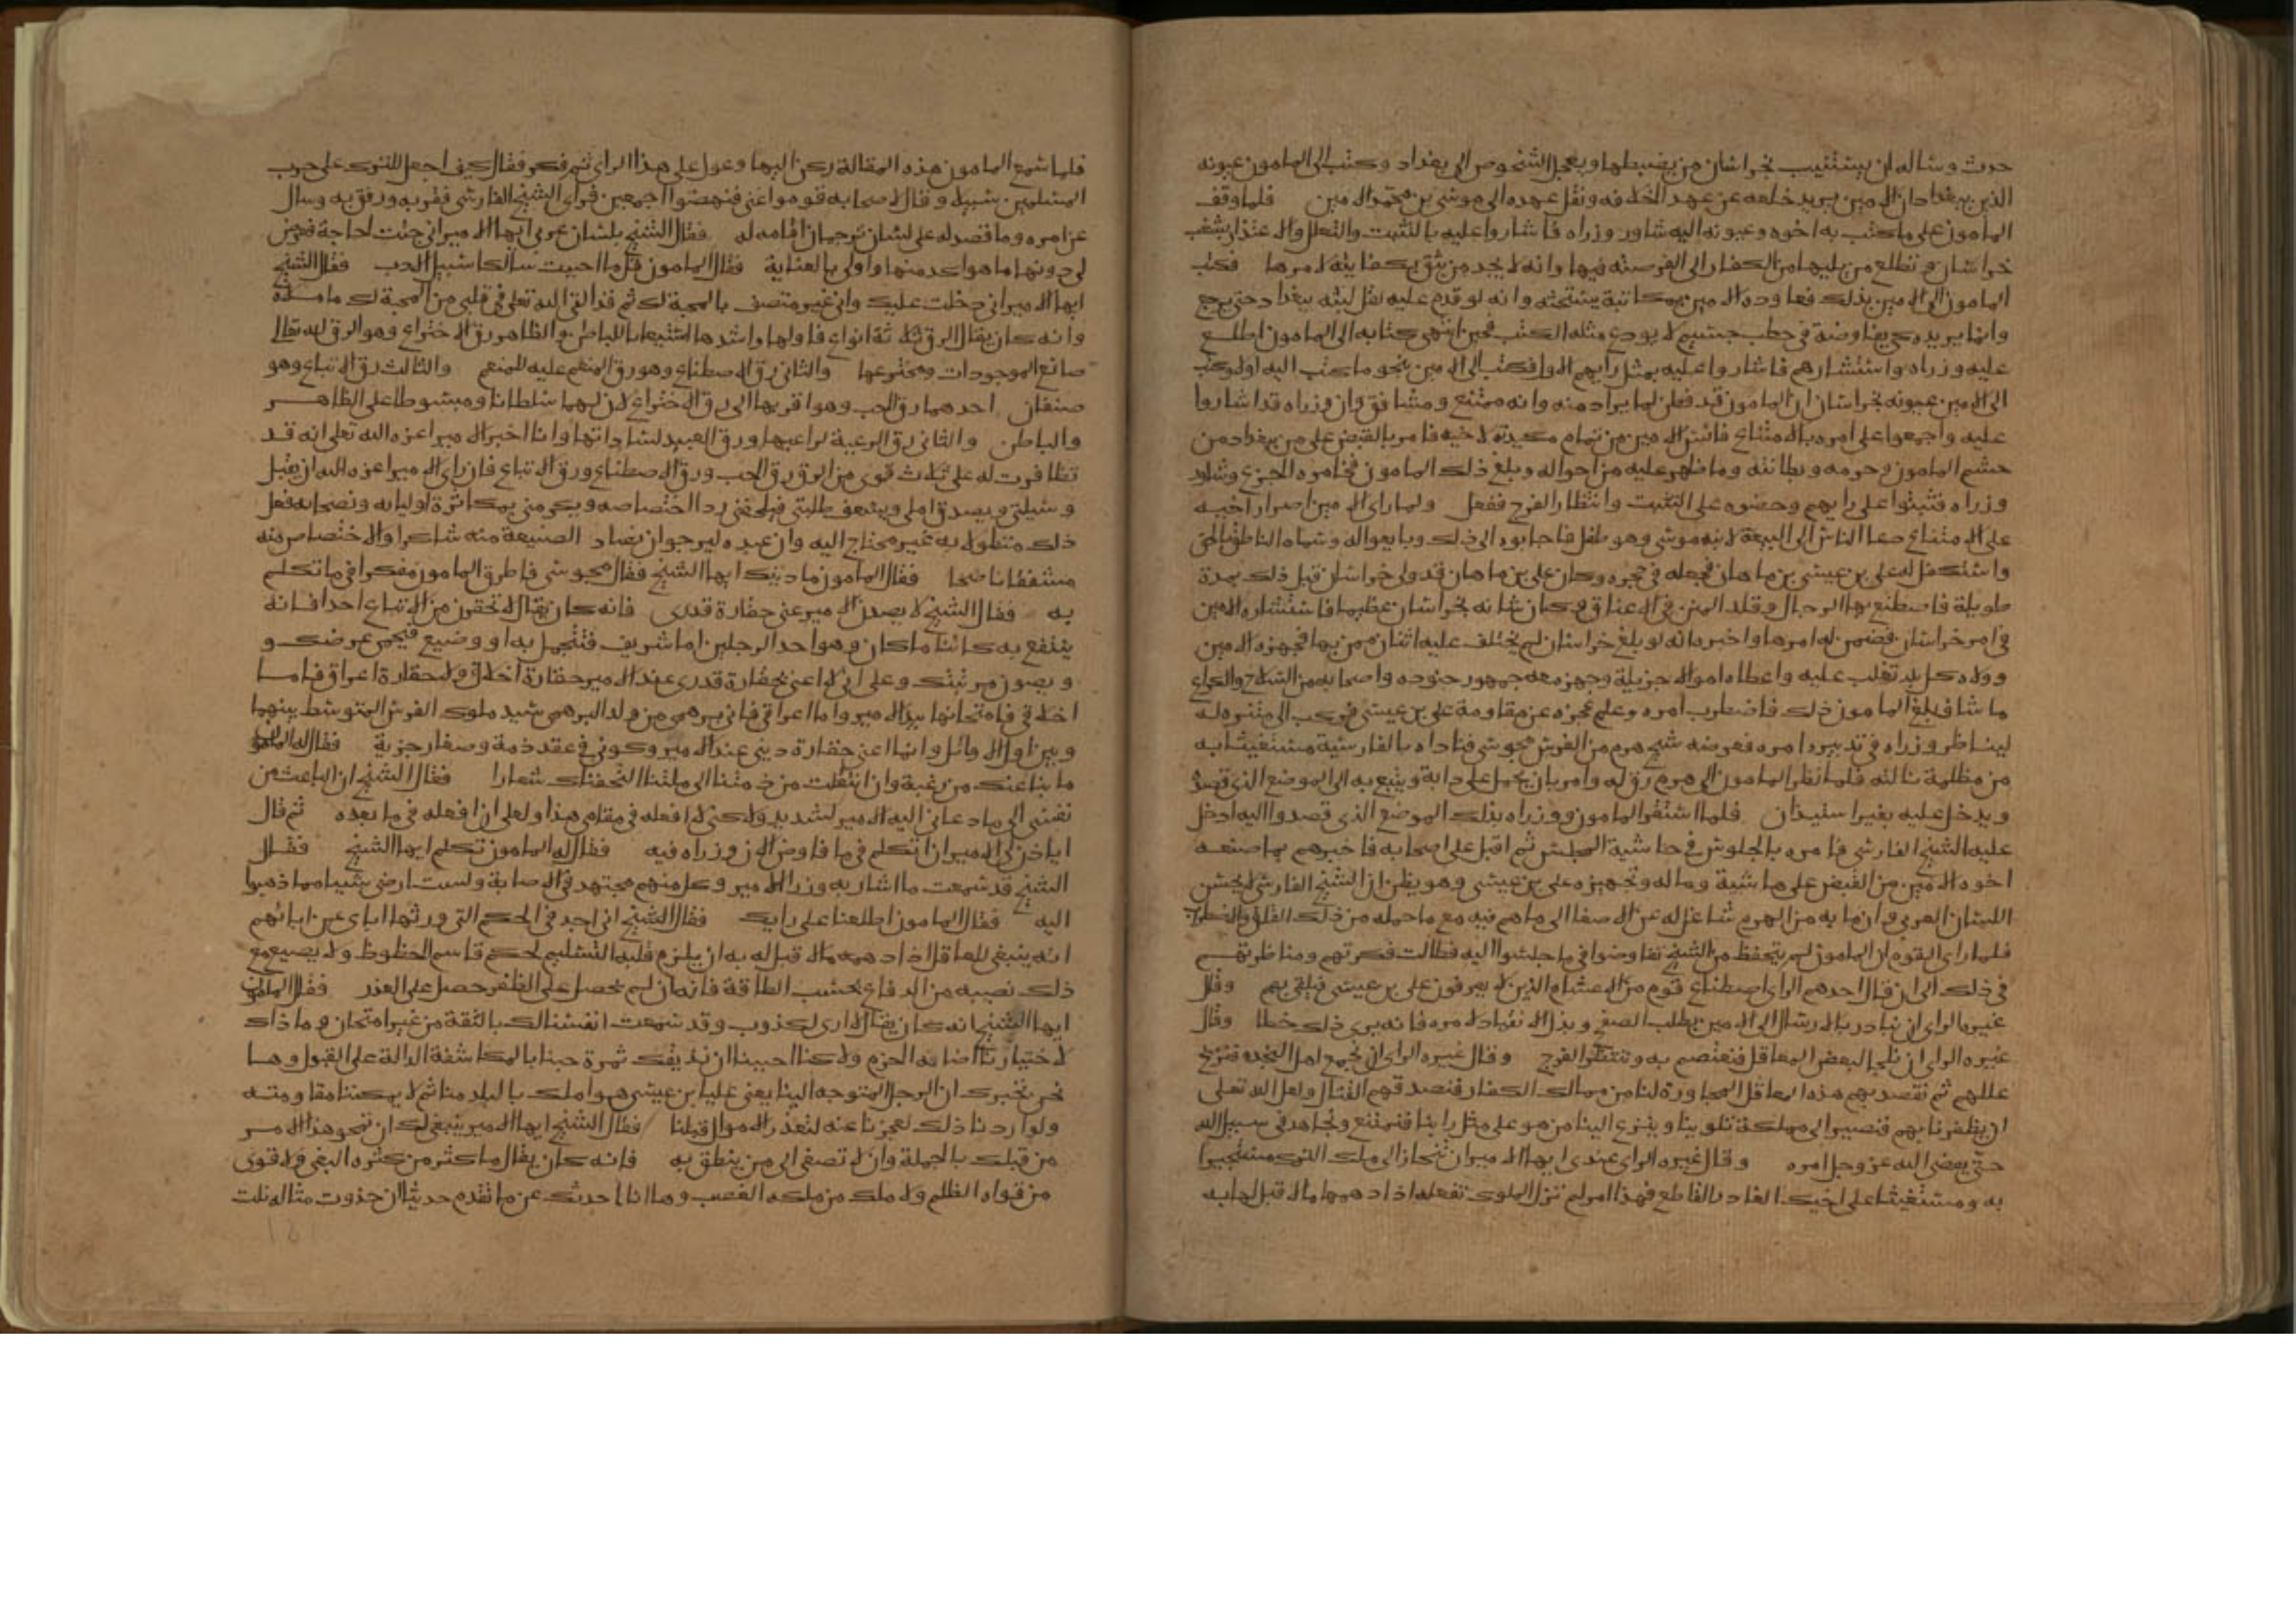 حدث وساله ان يستنيب بخراسان من يضبطها ويعجل الشخوص الى بغداد وكتب الى المامون عيونه
الذين ببغداد ان الامين يريد خلعه عن عهد الخلافه ونقل عهده الى موسى بن محمد الامين فلما وقف
المامون على ما كتب به اخوه وعيونه اليه شاور وزراه فاشاروا عليه بالتثبت والتعلل والاعتذار بشغب
خراسان وتطلع من يليها من الكفار الى الفرصة فيها وانه لا يجد من يثق بكفايته لامرها فكتب
المامون الى الامين بذلك فعاوده الامين بمكاتبة يستحثه وانه لو قدم عليه لقل لبثه ببغداد حتى يرجع
وانما يريده كي يفاوضه في خطب جسيم لا يودع مثله الكتب فحين انتهى كتابه الى المامون اطلع
عليه وزراه واستشارهم فاشاروا عليه بمثل رايهم الاول فكتب الى الامين بنحو ما كتب اليه اولا وكتب
الى الامين عيونه بخراسان ان المامون قد فطن لما يراد منه وانه ممتنع ومشاقق وان وزراه قد اشاروا
عليه واجمعوا على امره بالامتناع فائس الامين من تمام مكيدته لاخيه فامر بالقبض على من ببغداد من
حشم المامون وحرمه وبطانته وما ظهر عليه من امواله وبلغ ذلك المامون فخامره الجزع وشاور
وزراه فثبتوا على رايهم وحضوه على التثبت وانتظار الفرج ففعل ولما راى الامين اصرار اخيه
على الامتناع دعا الناس الى البيعة لابنه موسى وهو طفل فاجابوه الى ذلك وبايعوا له وسماه الناطق بالحق
واستكفل له على بن عيسى بن ماهان فجعله في حجره وكان على بن ماهان قد ولى خراسان قبل ذلك بمدة
طويلة فاصطنع بها الرجال وقلد المنن في الاعناق وكان شانه بخراسان عظيما فاستشاره الامين
في امر خراسان فضمن له امرها واخبره انه لو بلغ خراسان لم يختلف عليه اثنان ممن بها فجهزه الامين
وولاه كل بلد تغلب عليه واعطاه اموالا جزيلة وجهز معه جمهور جنوده واصحابه من السلاح والكراع
ما شا فبلغ المامون ذلك فاضطرب امره وعلم عجزه عن مقاومة على بن عيسى فركب الى متنزه له
ليناظر وزراه في تدبير امره فعرض له شيخ هرم من الفرس مجوسى فناداه بالفارسية مستغيثا به
من مظلمة نالته فلما نظر المامون الى هرمه رق له وامر بان يحمل على دابة ويتبع به الى الموضع الذي قصده
ويدخل عليه بغير استيذان فلما استقر المامون ووزراه بذلك الموضع الذي قصدوا اليه ادخل
عليه الشيخ الفارسى فامره بالجلوس في حاشية المجلس ثم اقبل على اصحابه فاخبرهم بما صنعه
اخوه الامين من القبض على حاشيته وماله وتجهيزه على بن عيسى وهو يظن ان الشيخ الفارسى لا يحسن
اللسان العربى وان ما به من الهرم شاغل له عن الاصغا الى ما هم فيه مع ما حمله من ذلك القلق والاضطراب
فلما راى القوم ان المامون لم يتحفظ من الشيخ تفاوضوا في ما جلسوا اليه فطالت فكرتهم ومناظرتهم
في ذلك الى ان قال احدهم الراى اصطناع قوم من الاغشام الذين لا يعرفون على بن عيسى فيلقى بهم وقال
غيره الراى ان نبادر بالارسال الى الامين بطلب الصفح وبذل الانقياد لامره فانه يرى ذلك خطا وقال
غيره الراى ان نلجا لبعض المعاقل فنعتصم به وننتظر الفرج وقال غيره الراى ان نجمع اهل النجده فنزيح
عللهم ثم نقصد بهم هذه المعاقل المجاورة لنا من ممالك الكفار فنصدقهم القتال ولعل الله تعلى
ان يظفرنا بهم فنصير الى مملكة تلوينا وينزع الينا من هو على مثل راينا فنمتنع ونجاهد في سبيل الله
حتى يمضى الله عز وجل امره وقال غيره الراى عندى ايها الامير ان تنحاز الى ملك الترك مستجيرا
به ومستغيثا على اخيك الغادر القاطع فهذا امر لم تزل الملوك تفعله اذا دهمها ما لا قبل لها به
فلما سمع المامون هذه المقالة ركن اليها وعول على هذا الراى ثم فكر فقال كيف اجعل للترك على حرب
المسلمين سبيلا وقال لاصحابه قوموا عنى فنهضوا اجمعين فراى الشيخ الفارسى فقربه ورفق به وسال
عن امره وما قصد له على لسان ترجمان اقامه له فقال الشيخ بلسان عربى ايها الامير انى جئت لحاجة فعرض
لى دونها ما هو اكد منها واولى بالعناية فقال المامون قل ما احببت سالكا سبيل الادب فقال الشيخ
ايها الامير انى دخلت عليك وانى غير متصف بالمحبة لك ثم قد القى الله تعلى في قلبى من المحبة لك ما ملاه
وانه كان يقال الرق ثلاثة انواع فاولها واشدها استيعابا للباطن والظاهر رق الاختراع وهو الرق لله تعالى
صانع الموجودات ومخترعها والثانى رق الاصطناع وهو رق المنعم عليه للمنعم والثالث رق الاتباع وهو
صنفان احدهما رق الحب وهو اقربها الى رق الاختراع لان لهما سلطانا ومبسوطا على الظاهر
والباطن والثانى رق الرعية لراعيها ورق العبيد لساداتها وانا اخبر الامير اعزه الله تعلى انه قد
تظافرت له على ثلاث قوى من الرق رق الحب ورق الاصطناع ورق الاتباع فان راى الامير اعزه الله ان يقبل
وسيلتى ويصدق املى ويسعف طلبتى فيلحفنى ردا اختصاصه ويكرمنى بمكاثرة اوليايه ونصحايه فعل
ذلك متطولا به غير محتاج اليه وان عبده ليرجو ان يصادف الصنيعة منه شاكرا والاختصاص منه
مشفقا ناصحا فقال المامون ما دينك ايها الشيخ فقال مجوسى فاطرق المامون مفكرا في ما تكلم
به فقال الشيخ لا يصدن الامير عنى حقارة قدرى فانه كان يقال لا تحقرن من الاتباع احدا فانه
ينتفع به كائنا ما كان وهو احد الرجلين اما شريف فتتجمل به او وضيع فيحمى عرضك و
ويصون مرتبتك وعلى انى لا اعنى بحقارة قدرى عند الامير حقارة اخلاقى ولا حقارة اعراقى فاما
اخلاقى فامتحانها بيد الامير واما اعراقى فانى برهمى من ولد البرهمى سيد ملوك الفرس المتوسط بينهما
وبين اول الاوائل وانما اعنى حقارة دينى عند الامير وكونى في عقد ذمة وصغار جزية فقال له المامون
ما بنا عنك من رغبة وان انتقلت من ذمتنا الى ملتنا التحفناك شعارا فقال الشيخ ان الباعث من
نفسى الى ما دعانى اليه الامير لشديد ولكنى لا افعله في مقامى هذا ولعلى ان افعله في ما بعده ثم قال
اياذن لى الامير ان اتكلم في ما فاوض الان وزراه فيه فقال له المامون تكلم ايها الشيخ فقال
الشيخ قد سمعت ما اشار به وزرا الامير وكل منهم مجتهد في الاصابة ولست ارضى شييا مما ذهبوا
اليه فقال المامون اطلعنا على رايك فقال الشيخ انى اجد في الحكم التى ورثها اباى عن ابائهم
انه ينبغى للعاقل اذا دهمه ما لا قبل له به ان يلزم قلبه التسليم لحكم قاسم الحظوظ ولا يضيع مع
ذلك نصيبه من الدفاع بحسب الطاقة فانه ان لم يحصل على الظفر حصل على العذر فقال المامون
ايها الشيخ انه كان يقال لا راى لكذوب وقد سمعت انفسنا لك بالثقة من غير امتحان وما ذاك
لاختيارنا اضاعة الحزم ولكنا احببنا ان نذيقك ثمرة حبنا بالمكاشفة الدالة على القبول وها
نحن نخبرك ان الرجل المتوجه الينا يعنى عليا بن عيسى هو املك بالبلد منا ثم لا يمكننا مقاومته
ولو اردنا ذلك لعجزنا عنه لتعذر الاموال قبلنا فقال الشيخ ايها الامير ينبغى لك ان تمحو هذا الامر
من قبلك بالجملة وان لا تصغى الى من ينطق به فانه كان يقال ما كثر من كثره البغى ولا قوى
من قواه الظلم ولا ملك من ملكه الغصب وها انا احدثك عن ما تقدم حديثا ان حذوت مثاله نلت